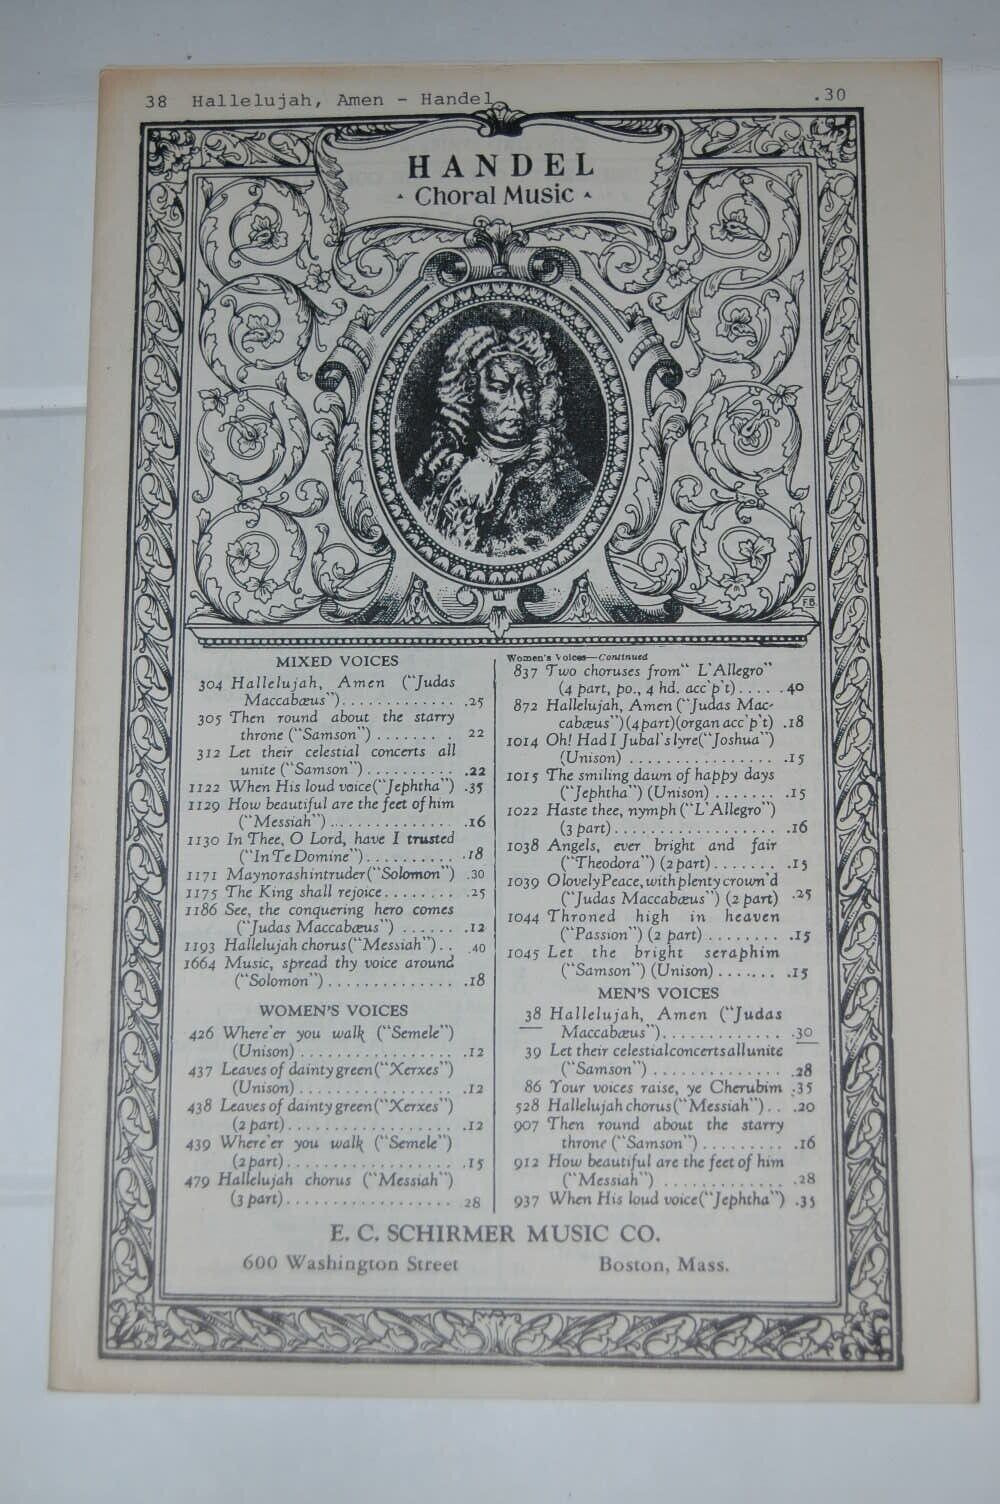 38 Hallelujah, Amen - Handel .30
HANDEL
Choral Music
FB
MIXED VOICES
304 Hallelujah, Amen ("Judas
Maccabæus")............. .25
305 Then round about the starry
throne ("Samson") ........ 22
312 Let their celestial concerts all
unite ("Samson").......... .22
1122 When His loud voice("Jephtha") .35
1129 How beautiful are the feet of him
("Messiah") .............. .16
1130 In Thee, O Lord, have I trusted
("In Te Domine").......... .18
1171 May no rash intruder("Solomon") .30
1175 The King shall rejoice........ .25
1186 See, the conquering hero comes
("Judas Maccabæus") ...... .12
1193 Hallelujah chorus("Messiah").. .40
1664 Music, spread thy voice around
("Solomon").............. .18
WOMEN'S VOICES
426 Where'er you walk ("Semele")
(Unison) ................. .12
437 Leaves of dainty green("Xerxes")
(Unison)................. .12
438 Leaves of dainty green("Xerxes")
(2 part).................. .12
439 Where'er you walk ("Semele")
(2 part).................. .15
479 Hallelujah chorus ("Messiah")
(3 part).................. 28
Women's Voices—Continued
837 Two choruses from" L'Allegro"
(4 part, po., 4 hd. acc'p't)..... .40
872 Hallelujah, Amen ("Judas Mac-
cabæus")(4 part)(organ acc'p't) .18
1014 Oh! Had I Jubal's lyre("Joshua")
(Unison) ................ .15
1015 The smiling dawn of happy days
("Jephtha") (Unison) ....... .15
1022 Haste thee, nymph ("L'Allegro")
(3 part).................. .16
1038 Angels, ever bright and fair
("Theodora") (2 part)....... .15
1039 O lovely Peace, with plenty crown'd
("Judas Maccabæus") (2 part) .25
1044 Throned high in heaven
("Passion") (2 part) ........ .15
1045 Let the bright seraphim
("Samson") (Unison)....... .15
MEN'S VOICES
38 Hallelujah, Amen ("Judas
Maccabæus")............. .30
39 Let their celestial concerts all unite
("Samson") .............. .28
86 Your voices raise, ye Cherubim .35
528 Hallelujah chorus("Messiah").. .20
907 Then round about the starry
throne ("Samson") ......... .16
912 How beautiful are the feet of him
("Messiah") ............. .28
937 When His loud voice("Jephtha") .35
E. C. SCHIRMER MUSIC CO.
600 Washington Street Boston, Mass.